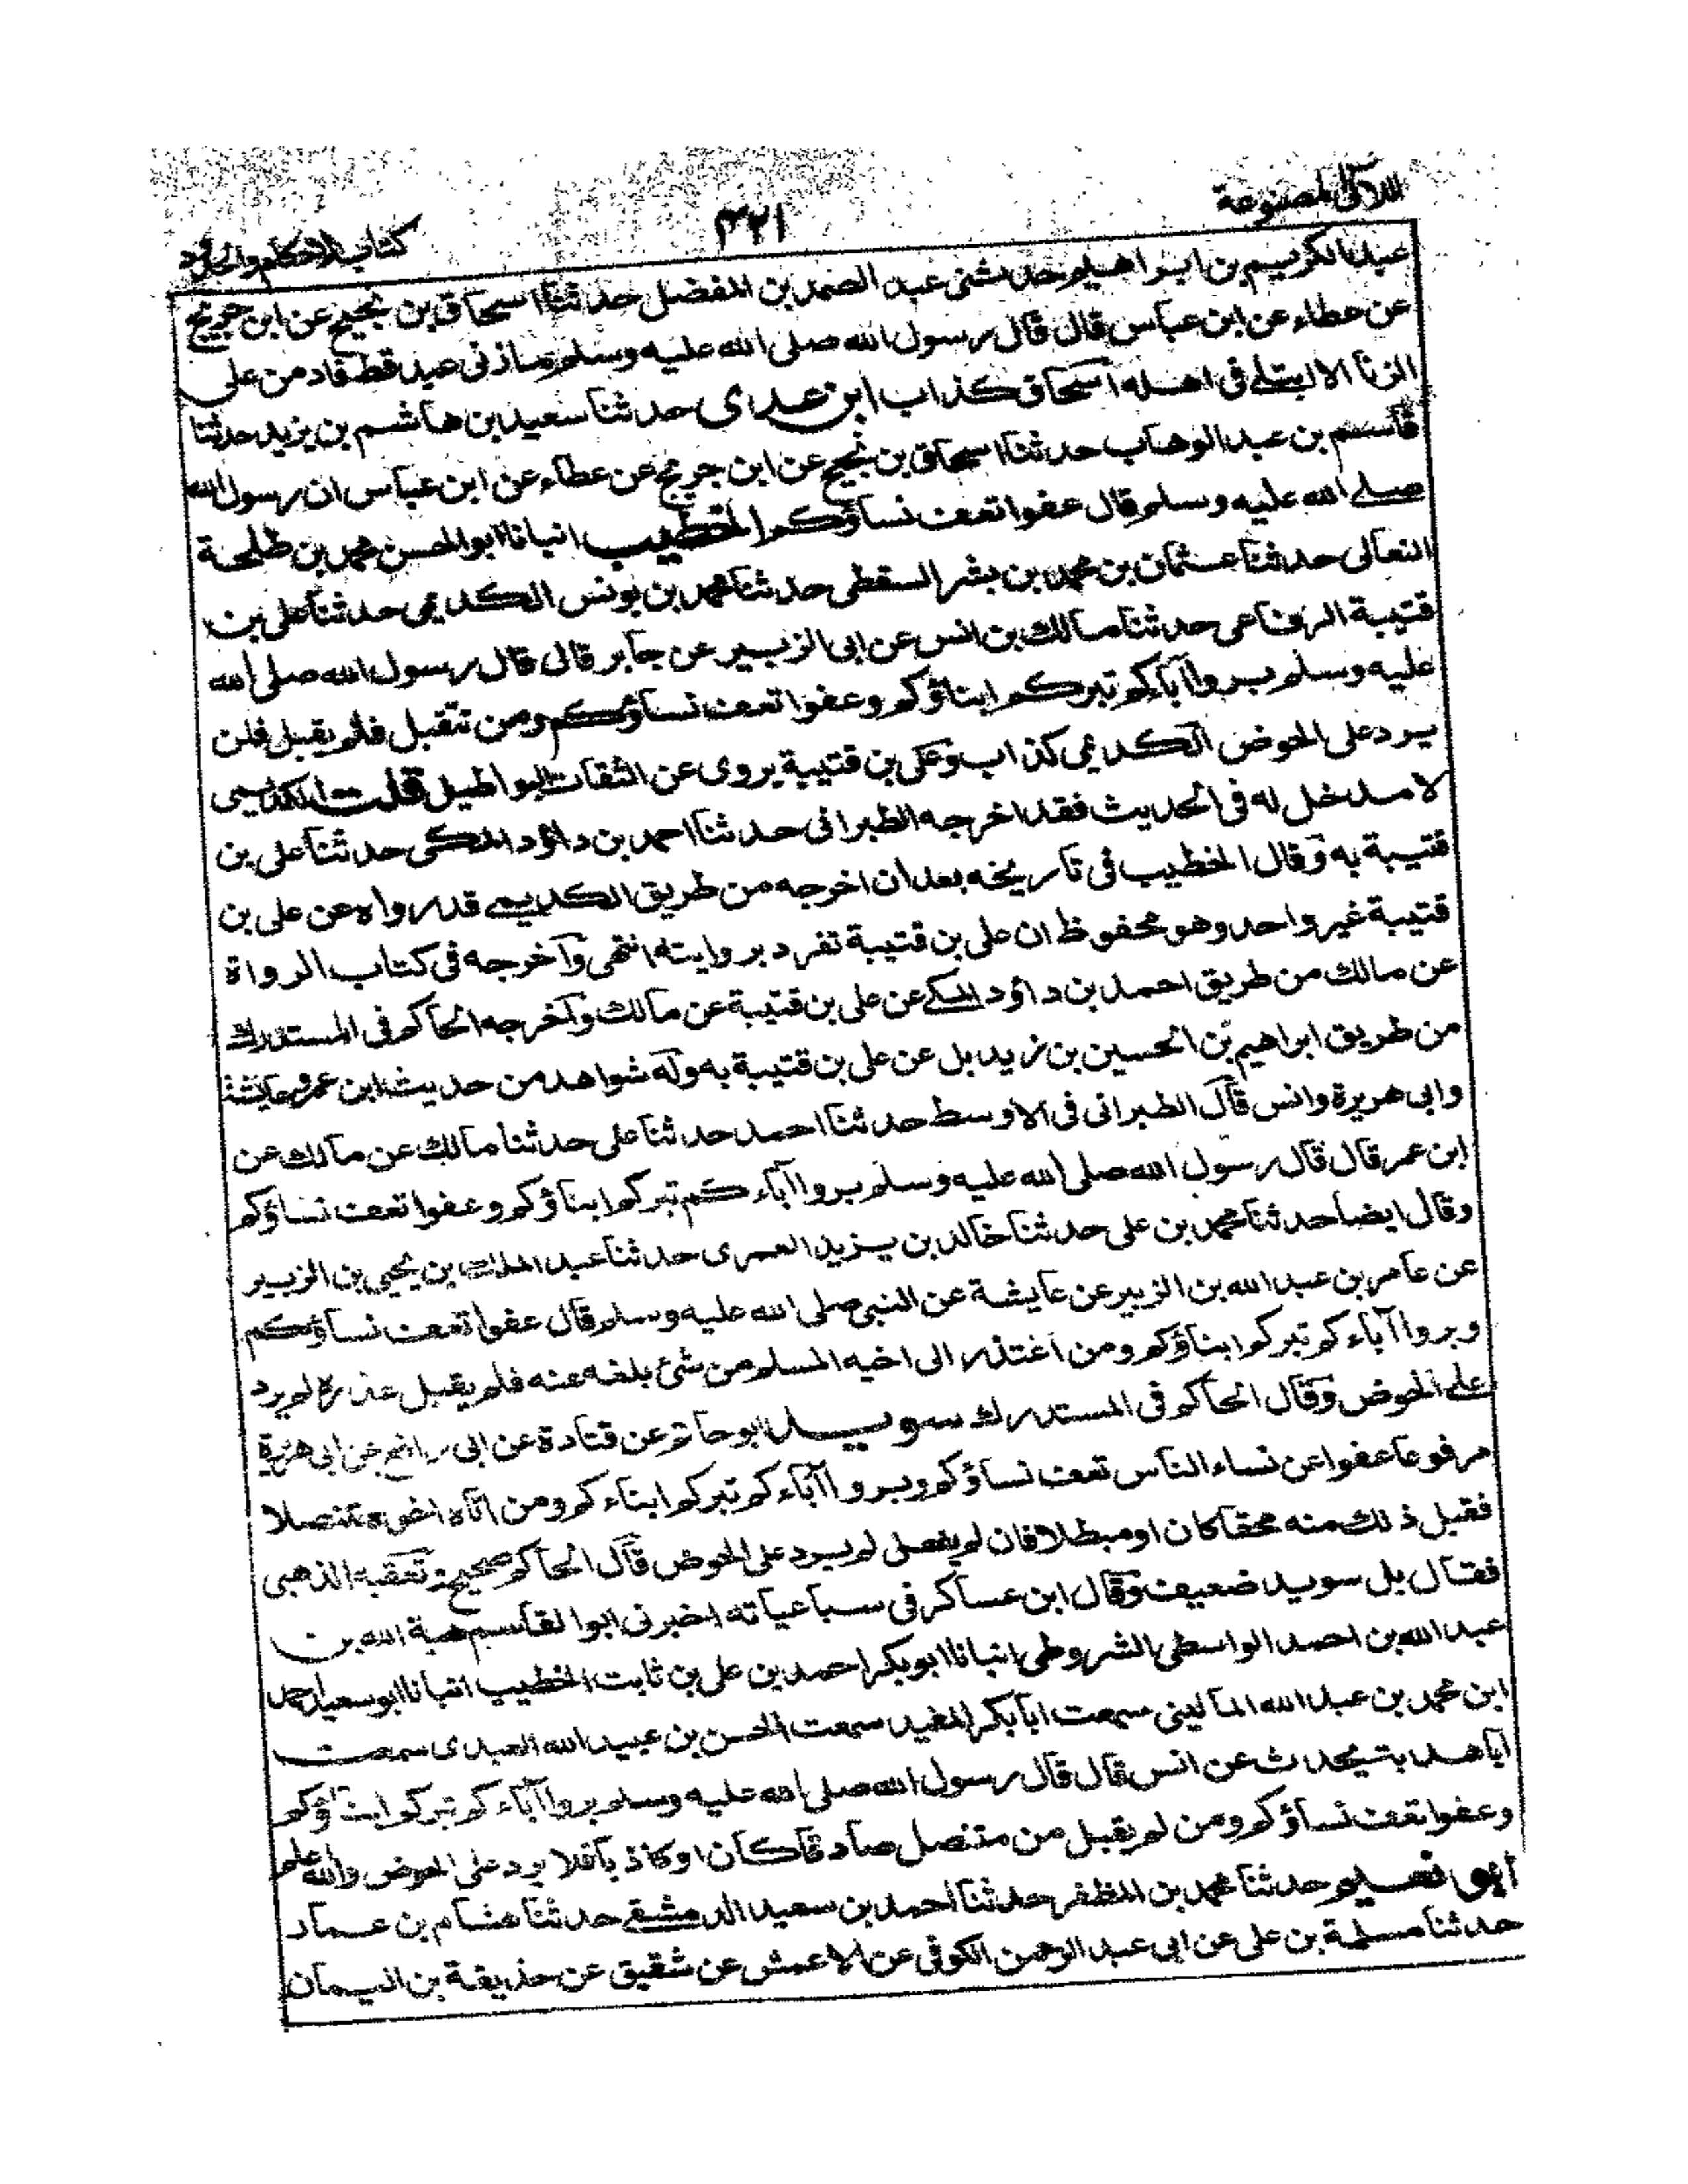 اللآلئ المصنوعة
٣٢١
كتاب الاحكام والحدود
عبد الكريم بن ابراهيم حدثنى عبد الصمد بن المفضل حدثنا اسحاق بن نجيح عن ابن جريج
عن عطاء عن ابن عباس قال قال رسول الله صلى الله عليه وسلم ما زنى عبد قط فادمن على
الزنا الا ابتلے فى اهله اسحاق كذاب ابن عدى حدثنا سعيد بن هاشم بن يزيد حدثنا
قاسم بن عبد الوهاب حدثنا اسحاق بن نجيح عن ابن جريج عن عطاء عن ابن عباس ان رسول الله
صلے الله عليه وسلم قال عفوا تعف نساؤكم الخطيب انبانا ابو الحسن محمد بن طلحة
النعالى حدثنا عثمان بن محمد بن بشر السقطى حدثنا محمد بن يونس الكديمى حدثنا على بن
قتيبة الرفاعى حدثنا مالك بن انس عن ابى الزبير عن جابر قال قال رسول الله صلى الله
عليه وسلم بروا آباءكم تبركم ابناؤكم وعفوا تعف نساؤكم ومن تنقبل فلم يقبل فلن
يرد على الحوض الكديمى كذاب وعلى بن قتيبة يروى عن الثقات البواطيل قلت الكديمى
لا مدخل له فى الحديث فقد اخرجه الطبرانى حدثنا احمد بن داؤد المكى حدثنا على بن
قتيبة به وقال الخطيب فى تاريخه بعد ان اخرجه من طريق الكديمے قد رواه عن على بن
قتيبة غير واحد وهو محفوظ ان على بن قتيبة تفرد بروايته انتهى وآخرجه فى كتاب الرواة
عن مالك من طريق احمد بن داؤد المكے عن على بن قتيبة عن مالك وآخرجه الحاكم فى المستدرك
من طريق ابراهيم بن الحسين بن زيد بل عن على بن قتيبة به وله شواهد من حديث ابن عمر وعايشة
وابى هريرة وانس قال الطبرانى فى الاوسط حدثنا احمد حدثنا على حدثنا مالك عن مالك عن
ابن عمر قال قال رسول الله صلى الله عليه وسلم بروا آباءكم تبركم ابناؤكم وعفوا تعف نساؤكم
وقال ايضا حدثنا محمد بن على حدثنا خالد بن يزيد العمرى حدثنا عبد الملك بن يحيى بن الزبير
عن عامر بن عبد الله بن الزبير عن عايشة عن النبى صلى الله عليه وسلم قال عفوا تعف نساؤكم
وبروا آباءكم تبركم ابناؤكم ومن اعتذر الى اخيه المسلم من شئ بلغه عنه فلم يقبل عذره لم يرد
على الحوض وقال الحاكم فى المستدرك سويد ابو حاتم عن قتادة عن ابى رافع عن ابى هريرة
مرفوعا عفوا عن نساء الناس تعف نساؤكم وبروا آباءكم تبركم ابناءكم ومن اتاه اخوه متنصلا
فقبل ذلك منه محقا كان او مبطلا فان لم يفعل لم يرد على الحوض قال الحاكم صحيح وتعقبه الذهبى
فقال بل سويد ضعيف وقال ابن عساكر فى سباعياته اخبرنى ابو القاسم هبة الله بن
عبد الله بن احمد الواسطى الشروطى انبانا ابو بكر احمد بن على بن ثابت الخطيب انبانا ابو سعيد احمد
ابن محمد بن عبد الله المالينى سمعت ابا بكر المفيد سمعت الحسن بن عبيد الله العبدى سمعت
ابا هدبة يحدث عن انس قال قال رسول الله صلى الله عليه وسلم بروا آباءكم تبركم ابناؤكم
وعفوا تعف نساؤكم ومن لم يقبل من متنصل صادقا كان او كاذبا فلا يرد على الحوض والله اعلم
ابو نعيم حدثنا محمد بن المظفر حدثنا احمد بن سعيد الدمشقے حدثنا هشام بن عمار
حدثنا مسلمة بن على عن ابى عبد الرحمن الكوفى عن الاعمش عن شقيق عن حذيفة بن اليمان